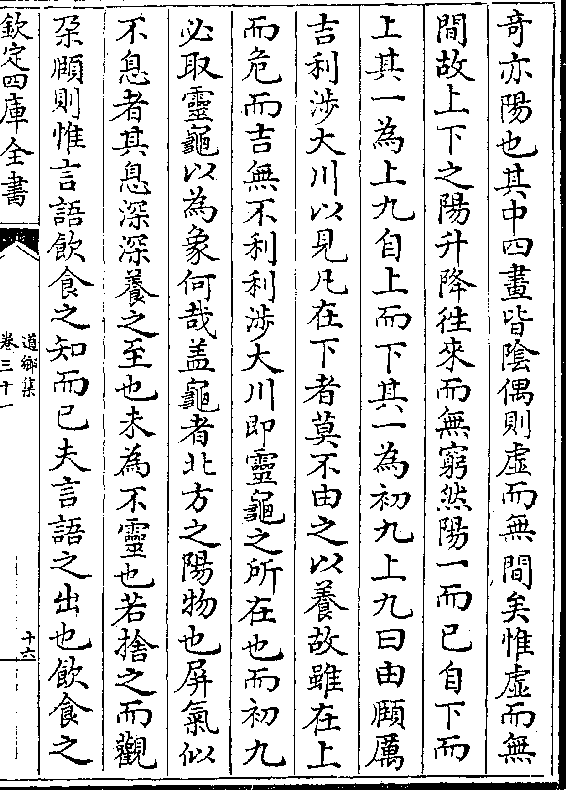 奇亦陽也其中四畫皆陰偶則虛而無間矣惟虛而無
間故上下之陽升降徃來而無窮然陽一而已自下而
上其一為上九自上而下其一為初九上九曰由頥厲
吉利涉大川以見凡在下者莫不由之以養故雖在上
而危而吉無不利利涉大川即靈龜之所在也而初九
必取靈龜以為象何哉盖龜者北方之陽物也屏氣似
不息者其息深深養之至也未為不靈也若捨之而觀
朶頥則惟言語飲食之知而已夫言語之出也飲食之
欽定四庫全書
道鄉集
卷三十一
十六